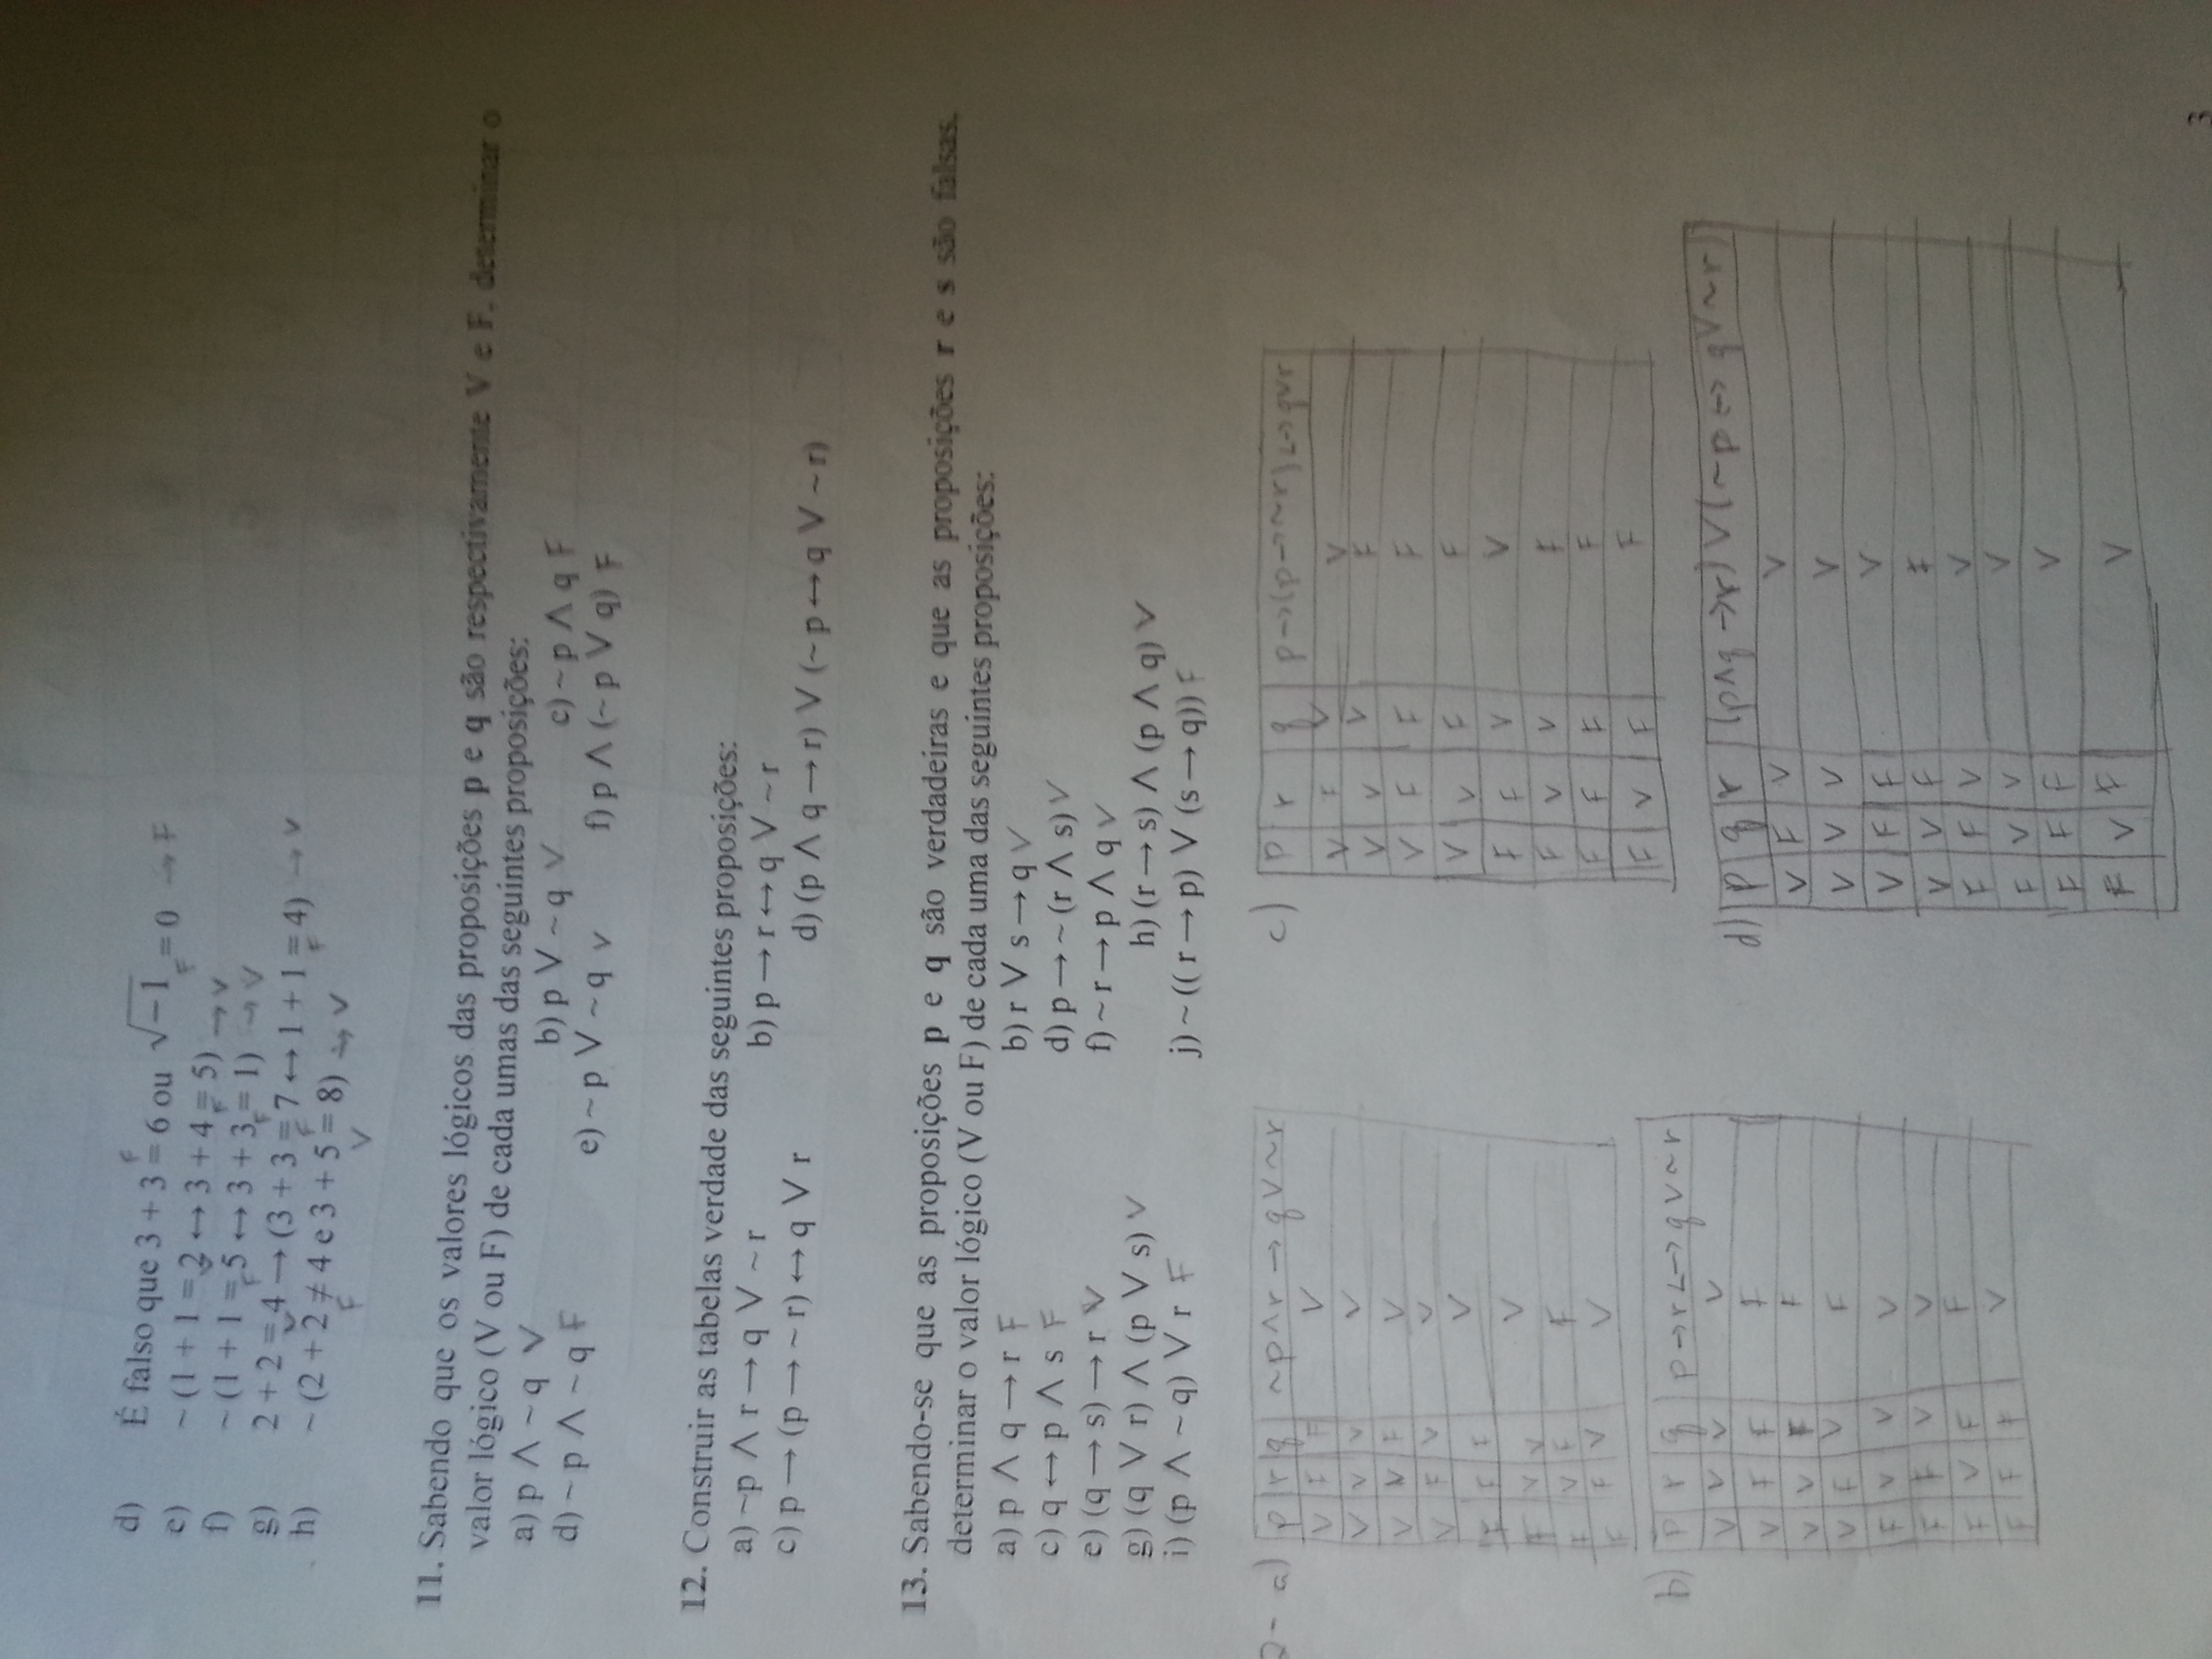 d) É falso que 3 + 3 = 6 ou √-1 = 0 → F
F F
e) ~ (1 + 1 = 2 ↔ 3 + 4 = 5) → V
V F
f) ~ (1 + 1 = 5 ↔ 3 + 3 = 1) → V
F F
g) 2 + 2 = 4 → (3 + 3 = 7 ↔ 1 + 1 = 4) → V
V F F
h) ~ (2 + 2 ≠ 4 e 3 + 5 = 8) → V
F V
11. Sabendo que os valores lógicos das proposições p e q são respectivamente V e F, determinar o
valor lógico (V ou F) de cada umas das seguintes proposições:
a) p ∧ ~ q V b) p V ~ q V c) ~ p ∧ q F
d) ~ p ∧ ~ q F e) ~ p V ~ q V f) p ∧ (~ p V q) F
12. Construir as tabelas verdade das seguintes proposições:
a) ~p ∧ r → q V ~ r b) p → r ↔ q V ~ r
c) p → (p → ~ r) ↔ q V r d) (p ∧ q → r) V (~ p ↔ q V ~ r)
13. Sabendo-se que as proposições p e q são verdadeiras e que as proposições r e s são falsas,
determinar o valor lógico (V ou F) de cada uma das seguintes proposições:
a) p ∧ q → r F b) r V s → q V
c) q ↔ p ∧ s F d) p → ~ (r ∧ s) V
e) (q → s) → r V f) ~ r → p ∧ q V
g) (q V r) ∧ (p V s) V h) (r → s) ∧ (p ∧ q) V
i) (p ∧ ~ q) V r F j) ~ (( r → p) V (s → q)) F
a)
p r q ~p∧r → q V ~r
V F F V
V V V V
V V F V
V F V V
F F F V
F V V V
F V F F
F F V V
b)
p r q p → r ↔ q V ~r
V V V V
V F F F
V V F F
V F V F
F V V V
F F V V
F V F F
F F F V
c)
p r q p → (p → ~r) ↔ q V r
V F V V
V V V F
V F F F
V V F F
F F V V
F V V F
F F F F
F V F F
d)
p q r (p∧q → r) V (~p ↔ q V ~r)
V F V V
V V V V
V F F V
V V F F
F F V V
F V V V
F F F V
F V F V
3